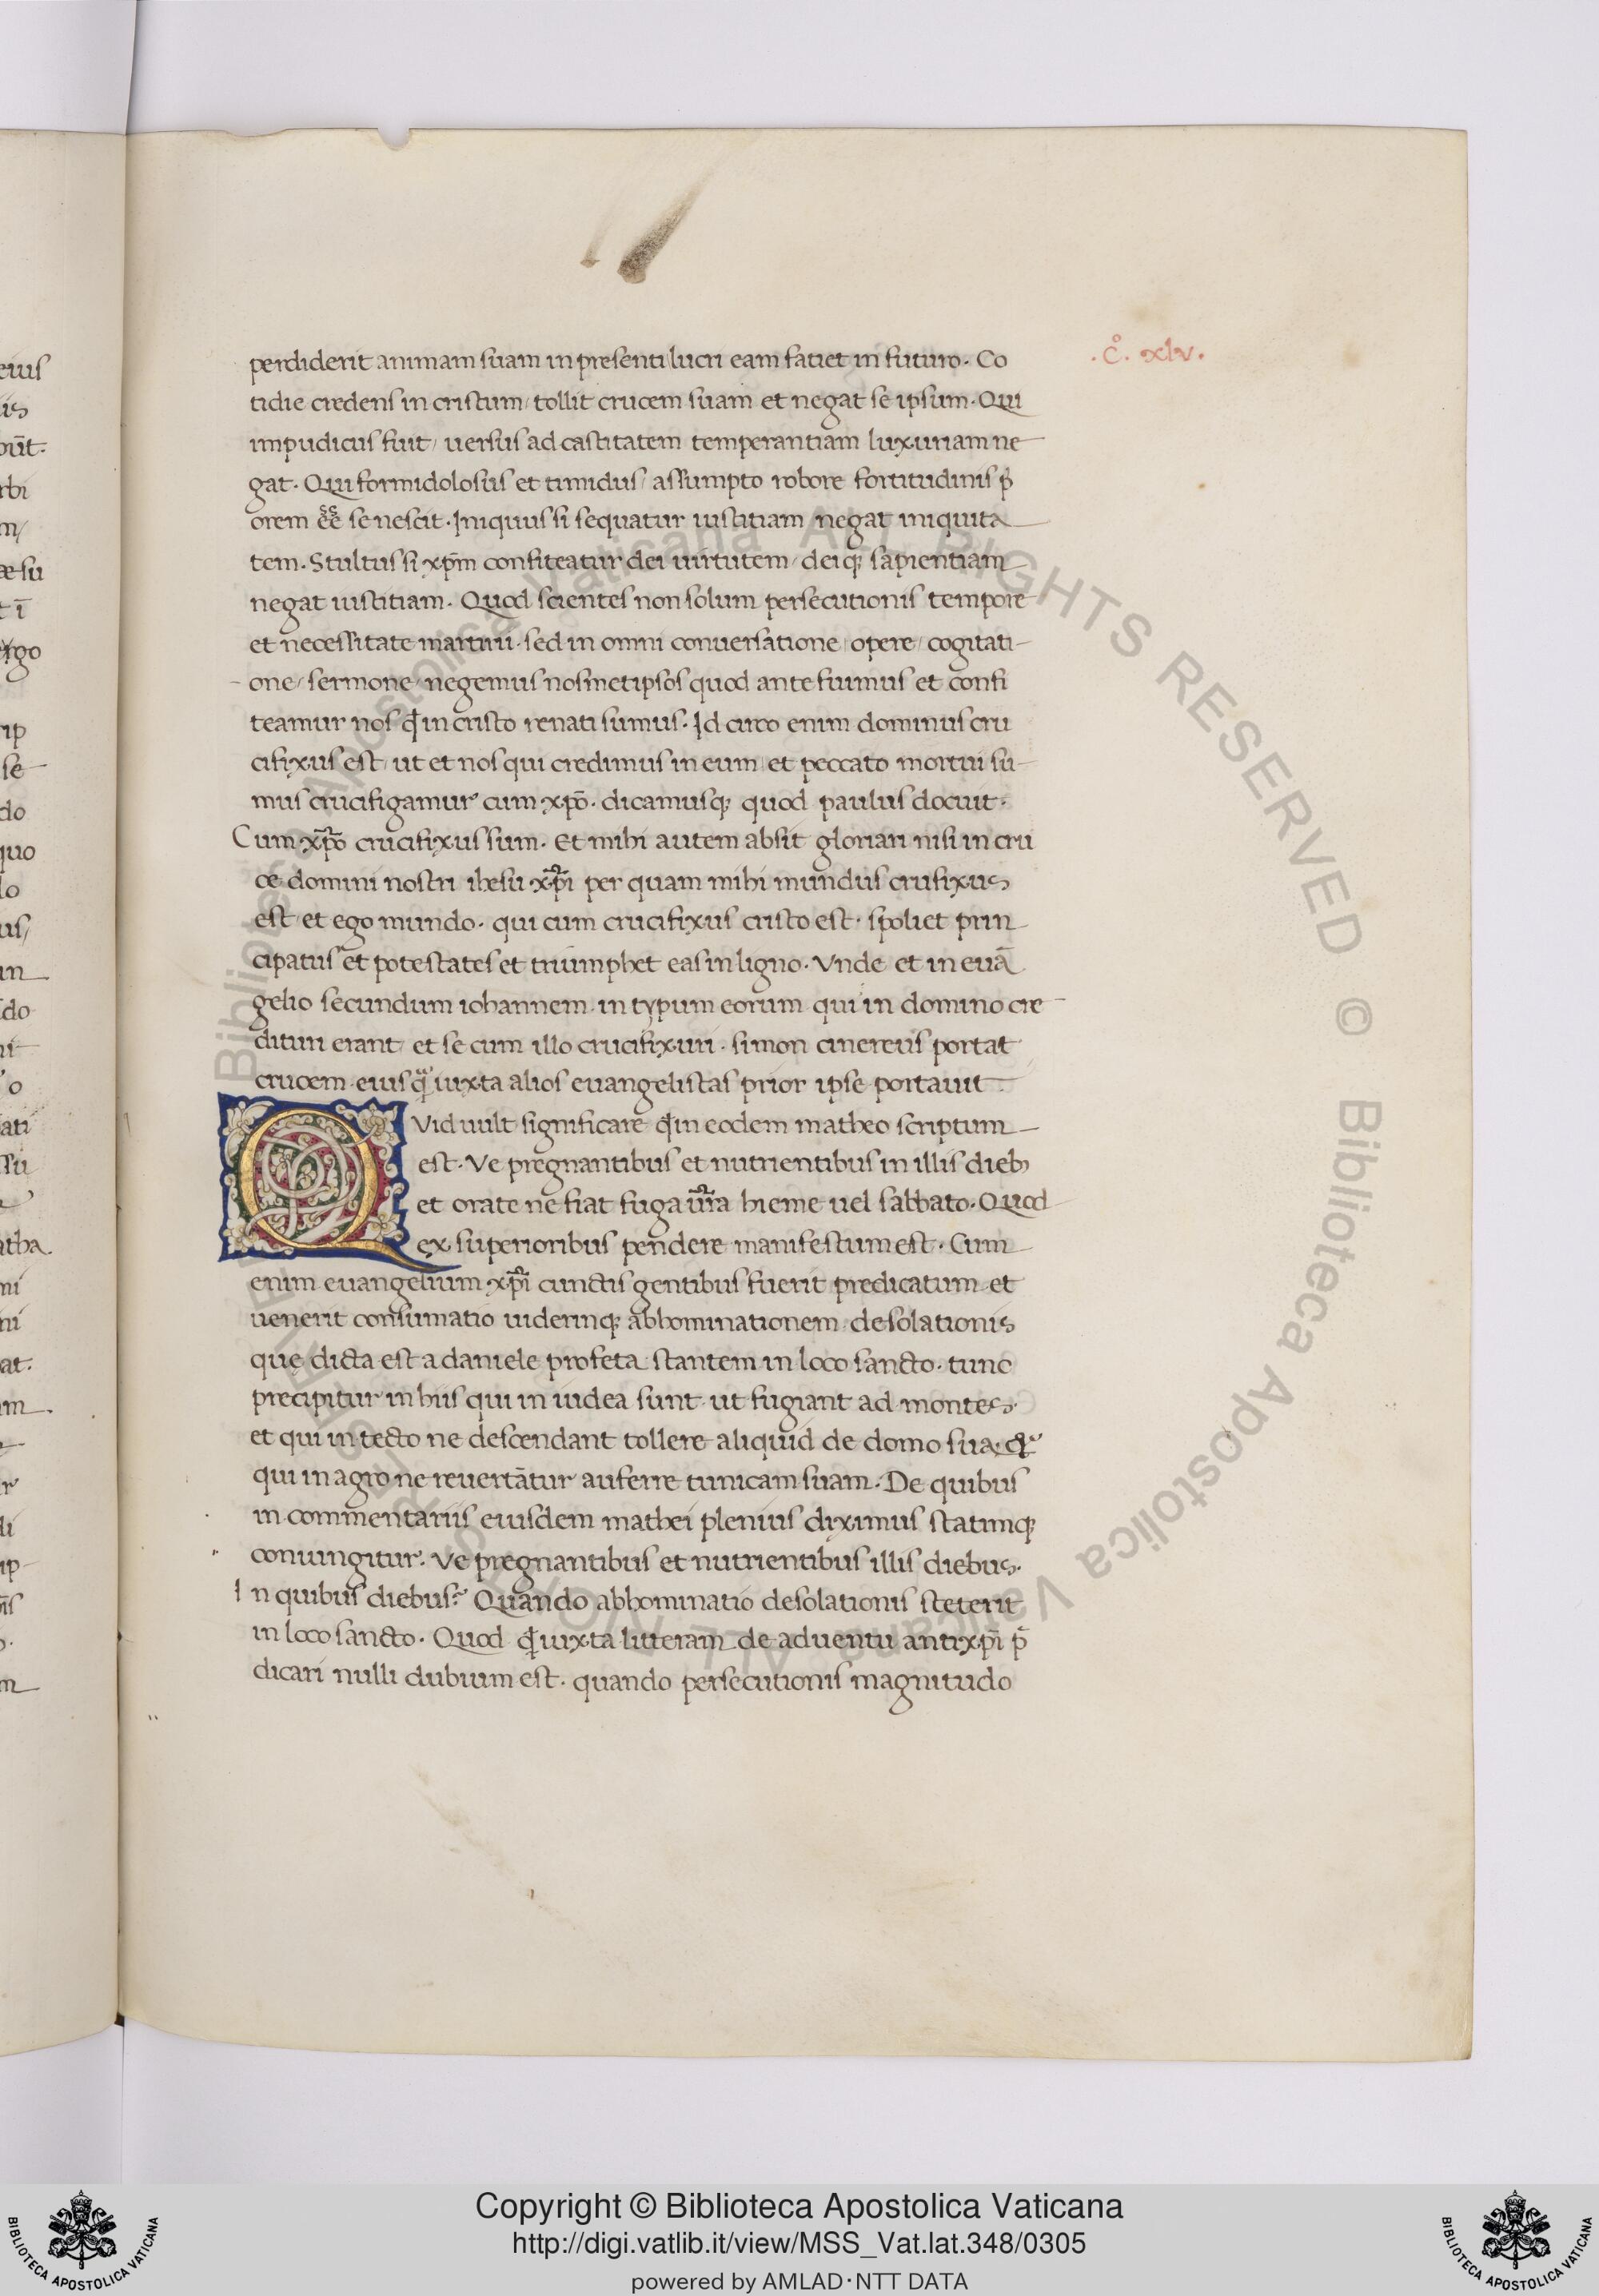 perdiderit animam suam in presenti lucri eam fatiet in futuro. Co
tidie credens in cristum/ tollit crucem suam et negat se ipsum. Qui
impudicus fuit/ uersus ad castitatem temperantiam luxuriam ne
gat. Qui formidolosus et timidus/ assumpto robore fortitudinis p̄
orem ēē se nescit. Iniquus si sequatur iustitiam negat iniquita
tem. Stultus si xp̄m confiteatur dei uirtutem/ deiq; sapientiam
negat iustitiam. Quod scientes non solum persecutionis tempore
et necessitate martirii. sed in omni conuersatione/ opere/ cogitati-
-one/ sermone/ negemus nosmetipsos quod ante fuimus et confi
teamur nos qd̄ in cristo renati sumus. Id circo enim dominus cru
cifixus est/ ut et nos qui credimus in eum/ et peccato mortui su-
mus crucifigamur cum xp̄o. dicamusq; quod paulus docuit.
Cum xp̄o crucifixus sum. Et mihi autem absit gloriari nisi in cru
ce domini nostri ihesu xp̄i per quam mihi mundus crufixus
est/ et ego mundo. qui cum crucifixus cristo est. spoliet prin
cipatus et potestates et triumphet eas in ligno. Vnde et in euā
gelio secundum iohannem in typum eorum qui in domino cre
dituri erant/ et se cum illo crucifixuri. simon cinereus portat
crucem eius quā iuxta alios euangelistas prior ipse portauit
Qvid uult significare qd̄ in eodem matheo scriptum
est. Ve pregnantibus et nutrientibus in illis dieb;
et orate ne fiat fuga ur̄a hieme uel sabbato. Quod
ex superioribus pendere manifestum est. Cum
enim euangelium xp̄i cunctis gentibus fuerit predicatum et
uenerit consumatio uiderinq; abhominationem desolationis
quę dicta est a daniele profeta stantem in loco sancto. tunc
precipitur in hiis qui in iudea sunt ut fugiant ad montes.
et qui in tecto ne descendant tollere aliquid de domo sua.
qui in agro ne reuertātur auferre tunicam suam. De quibus
in commentariis eiusdem mathei plenius diximus statimq;
coniungitur. Ve pregnantibus et nutrientibus illis diebus.
In quibus diebus? Quando abhominatio desolationis steterit
in loco sancto. Quod qd̄ iuxta litteram de aduentu antixp̄i p̄
dicari nulli dubium est. quando persecutionis magnitudo
.c̊. xlv.
© Biblioteca Apostolica Vaticana ALL RIGHTS RESERVED
Copyright © Biblioteca Apostolica Vaticana
http://digi.vatlib.it/view/MSS_Vat.lat.348/0305
powered by AMLAD·NTT DATA
BIBLIOTECA APOSTOLICA VATICANA
BIBLIOTECA APOSTOLICA VATICANA